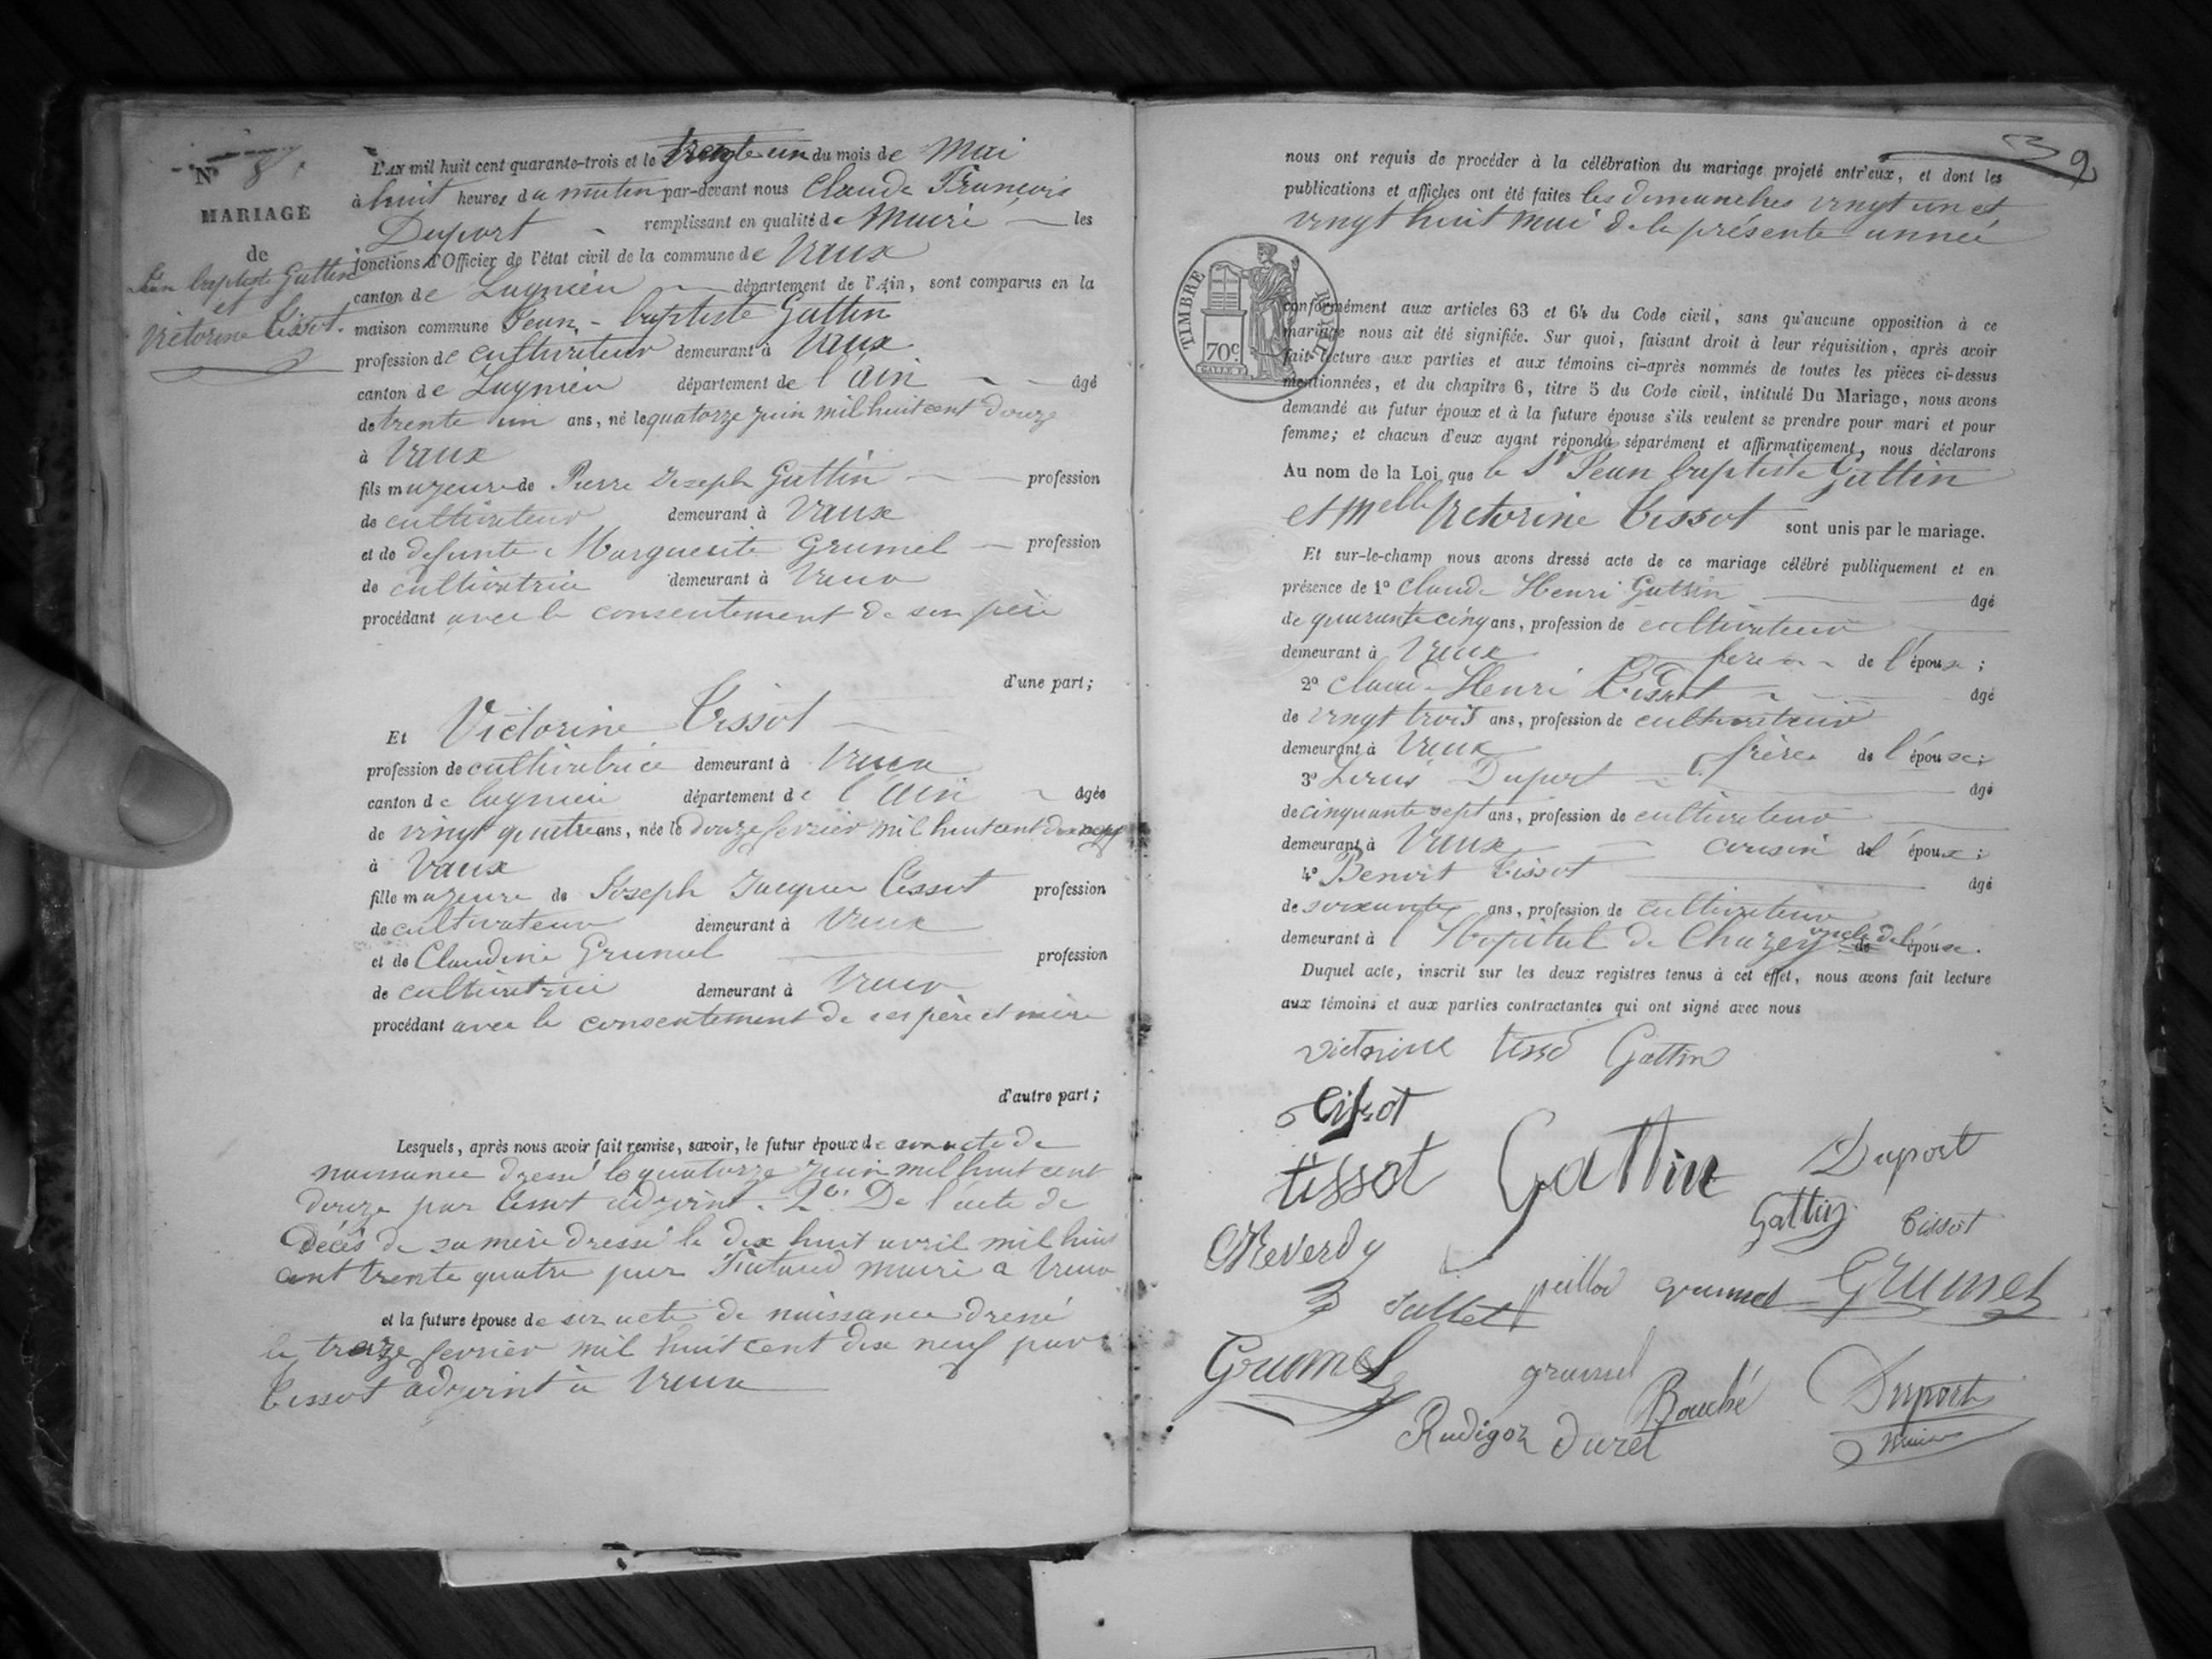 N° 8.
MARIAGE
de
Jean baptiste Gattin
et
Victorine Tissot.
L'AN mil huit cent quarante-trois et le trente un du mois de Mai
à huit heures du matin par-devant nous Claude François
Duport remplissant en qualité de Maire les
fonctions d'Officier de l'état civil de la commune de Vaux
canton de Lagnieu département de l'Ain, sont comparus en la
maison commune Jean-baptiste Gattin
profession de cultivateur demeurant à Vaux
canton de Lagnieu département de l'ain âgé
de trente un ans, né le quatorze juin mil huit cent douze
à Vaux
fils majeur de Pierre Joseph Gattin profession
de cultivateur demeurant à Vaux
et de defunte Marguerite Grumel profession
de cultivatrice demeurant à Vaux
procédant avec le consentement de son père
d'une part;
Et Victorine Tissot
profession de cultivatrice demeurant à Vaux
canton de lagnieu département de l'ain âgée
de vingt quatre ans, née le douze fevrier mil huit cent dix neuf
à Vaux
fille majeure de Joseph Jacques Tissot profession
de cultivateur demeurant à Vaux
et de Claudine Grumel profession
de cultivatrice demeurant à Vaux
procédant avec le consentement de ses père et mère
d'autre part;
Lesquels, après nous avoir fait remise, savoir, le futur époux de son acte de
naissance dressé le quatorze juin mil huit cent
douze par Tissot adjoint. 2° De l'acte de
Décès de sa mère dressé le dix huit avril mil huit
cent trente quatre par maire a Vaux
et la future épouse de son acte de naissance dressé
le treize fevrier mil huit cent dix neuf par
Tissot adjoint à Vaux
39
nous ont requis de procéder à la célébration du mariage projeté entr'eux, et dont les
publications et affiches ont été faites les dimanches vingt un et
vingt huit mai de la présente année
TIMBRE ROYAL
70c
conformément aux articles 63 et 64 du Code civil, sans qu'aucune opposition à ce
mariage nous ait été signifiée. Sur quoi, faisant droit à leur réquisition, après avoir
fait lecture aux parties et aux témoins ci-après nommés de toutes les pièces ci-dessus
mentionnées, et du chapitre 6, titre 5 du Code civil, intitulé Du Mariage, nous avons
demandé au futur époux et à la future épouse s'ils veulent se prendre pour mari et pour
femme; et chacun d'eux ayant répondu séparément et affirmativement, nous déclarons
Au nom de la Loi, que le Sr Jean baptiste Gattin
et Melle Victorine Tissot sont unis par le mariage.
Et sur-le-champ nous avons dressé acte de ce mariage célébré publiquement et en
présence de 1° Claude Henri Gattin âgé
de quarante cinq ans, profession de cultivateur
demeurant à Vaux frere de l'époux;
2° Claude Henri Tissot âgé
de vingt trois ans, profession de cultivateur
demeurant à Vaux frère de l'épouse;
3° Louis Duport âgé
de cinquante sept ans, profession de cultivateur
demeurant à Vaux cousin de l'époux;
4° Benoit Tissot âgé
de soixante ans, profession de cultivateur
demeurant à l'Hopital de Chazey oncle de l'épouse.
Duquel acte, inscrit sur les deux registres tenus à cet effet, nous avons fait lecture
aux témoins et aux parties contractantes qui ont signé avec nous
victorine tisso Gattin
Tissot
tissot Gattin Duport
Gattin Tissot
Reverdy
Sallet peillod grumel Grumel
Grumel grumel
Bouché Duport
Rudigoz Duret Maire